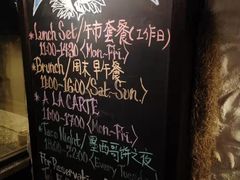 *Lunch Set/午市套餐(工作日)
11:00-14:30 <Mon-Fri>
*Brunch/周末早午餐
11:00-16:00 <Sat-Sun>
*A LA CARTE
14:00-17:00 <Mon-Fri>
*Taco Night/墨西哥饼之夜
18:00-22:00 <Every Tues
For Reservat